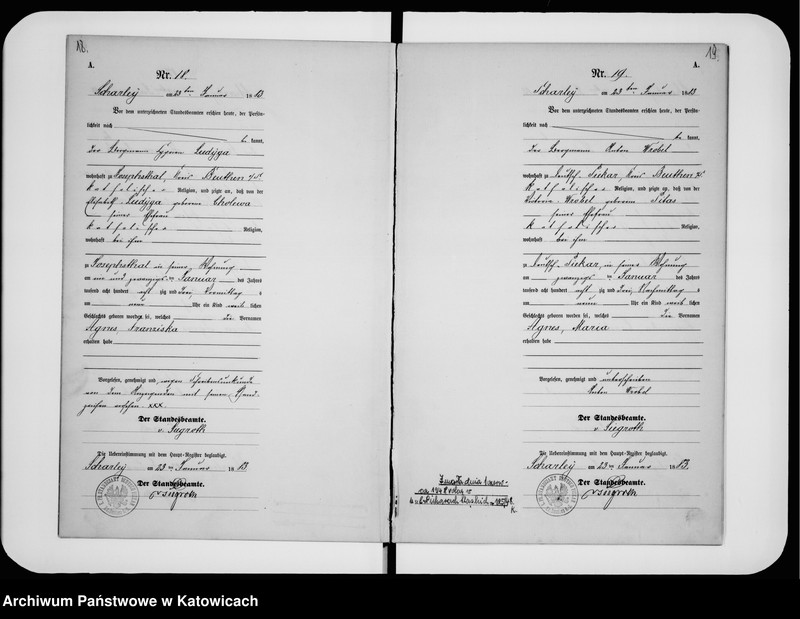 18.
A.
Nr. 18.
Scharley am 23ten Januar 1883
Vor dem unterzeichneten Standesbeamten erschien heute, der Persön-
lichkeit nach
be kannt,
der Bergmann Ludyga
wohnhaft zu Josephsthal, Kreis Beuthen O/S
katholischer Religion, und zeigte an, daß von der
Ludyga geborene Cholewa
seiner Ehefrau
katholischer Religion,
wohnhaft bei ihm
zu Josephsthal in seiner Wohnung
am ein und zwanzigsten Januar des Jahres
tausend acht hundert acht zig und drei, Vormittag s
um neun Uhr ein Kind weib lichen
Geschlechts geboren worden sei, welches die Vornamen
Agnes, Franziska
erhalten habe
Vorgelesen, genehmigt und wegen Schreibensunkunde
von dem Anzeigenden mit seinem Hand-
zeichen versehen. xxx.
Der Standesbeamte.
v. Siegroth
Die Uebereinstimmung mit dem Haupt-Register beglaubigt.
Scharley am 23ten Januar 1883
Der Standesbeamte.
v. Siegroth
19.
A.
Nr. 19.
Scharley am 23ten Januar 1883
Vor dem unterzeichneten Standesbeamten erschien heute, der Persön-
lichkeit nach
be kannt,
der Bergmann Anton Wrobel
wohnhaft zu Deutsch-Piekar, Kreis Beuthen O/S
katholischer Religion, und zeigte an, daß von der
Wrobel geborene Pitas
seiner Ehefrau
katholischer Religion,
wohnhaft bei ihm
zu Deutsch-Piekar, in seiner Wohnung
am zwanzigsten Januar des Jahres
tausend acht hundert acht zig und drei, Nachmittag s
um neun Uhr ein Kind weib lichen
Geschlechts geboren worden sei, welches die Vornamen
Agnes, Maria
erhalten habe
Vorgelesen, genehmigt und unterschrieben
Anton Wrobel
Der Standesbeamte.
v. Siegroth
Die Uebereinstimmung mit dem Haupt-Register beglaubigt.
Scharley am 23ten Januar 1883.
Der Standesbeamte.
v. Siegroth
Archiwum Państwowe w Katowicach